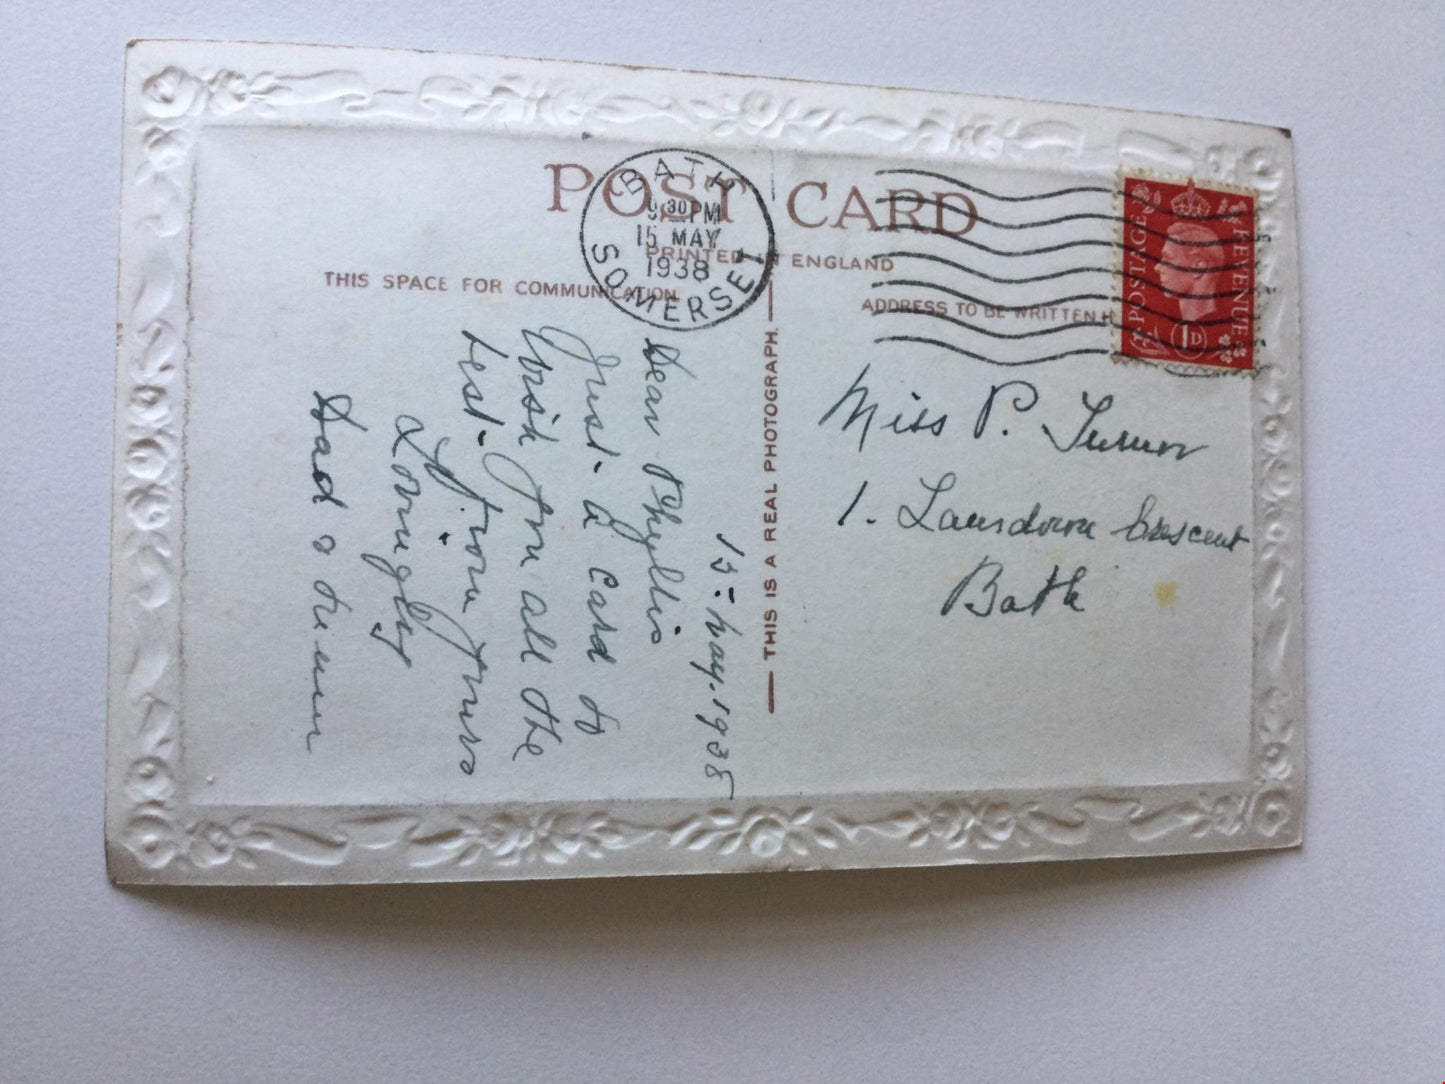 POST CARD
PRINTED IN ENGLAND
THIS SPACE FOR COMMUNICATION
ADDRESS TO BE WRITTEN H
THIS IS A REAL PHOTOGRAPH.
BATH
9 30 PM
15 MAY
1938
SOMERSET
POSTAGE
REVENUE
1D
15 = May. 1938
Dear Phyllis
Just a card to
Wish you all the
best - from yours
Lovingly
Dad & Mum
Miss P. Turner
1. Lansdown Crescent
Bath